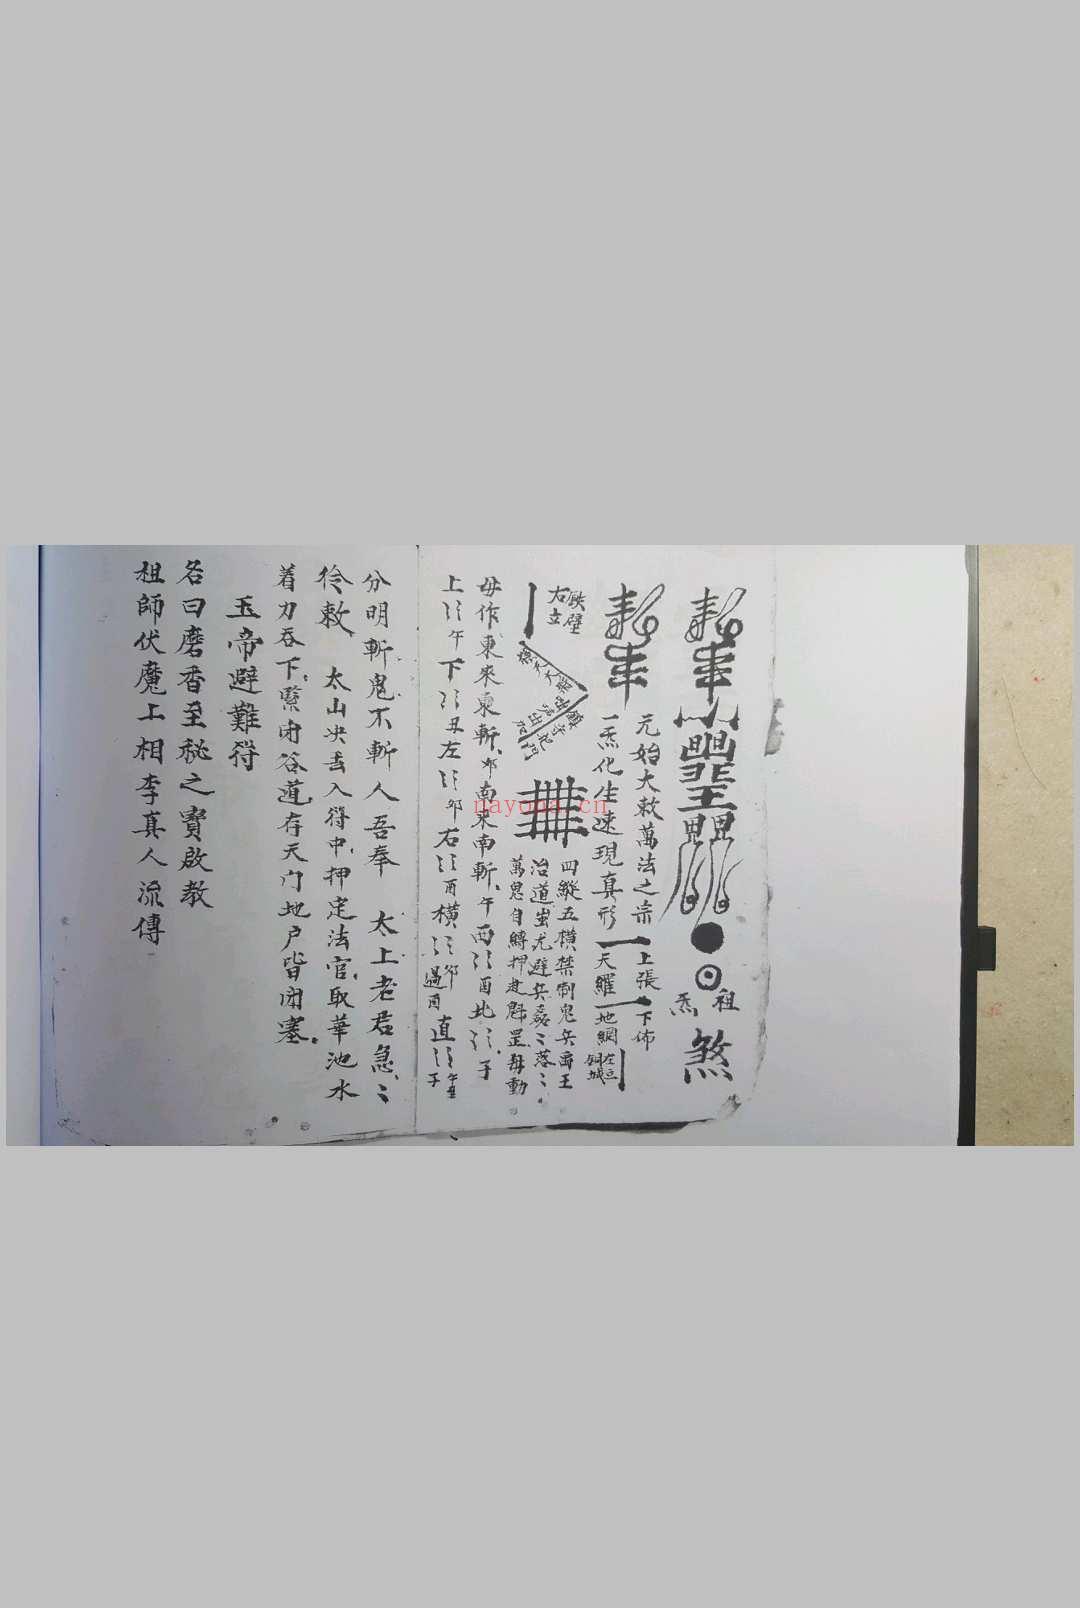 祖
炁
煞
元始大敕萬法之宗
一炁化生速現真形
上張
天羅
下佈
地網
左立
銅城
鉄壁
右立
四縱五橫禁制鬼兵帝王
治道蚩尤避兵
萬鬼自縛押赴魁罡毋動
毋作東來東斬卯南來南斬午西〻酉北〻子
上〻午下〻丑左〻卯右〻酉橫〻卯過酉直〻午
分明斬鬼不斬人吾奉 太上老君急〻
敕 太山決丟入符中押定法官取華池水
着力吞下緊闭谷道存天门地户皆闭塞
玉帝避難符
名曰磨香至秘之寶啟教
祖師伏魔上相李真人流傳
nayona.cn